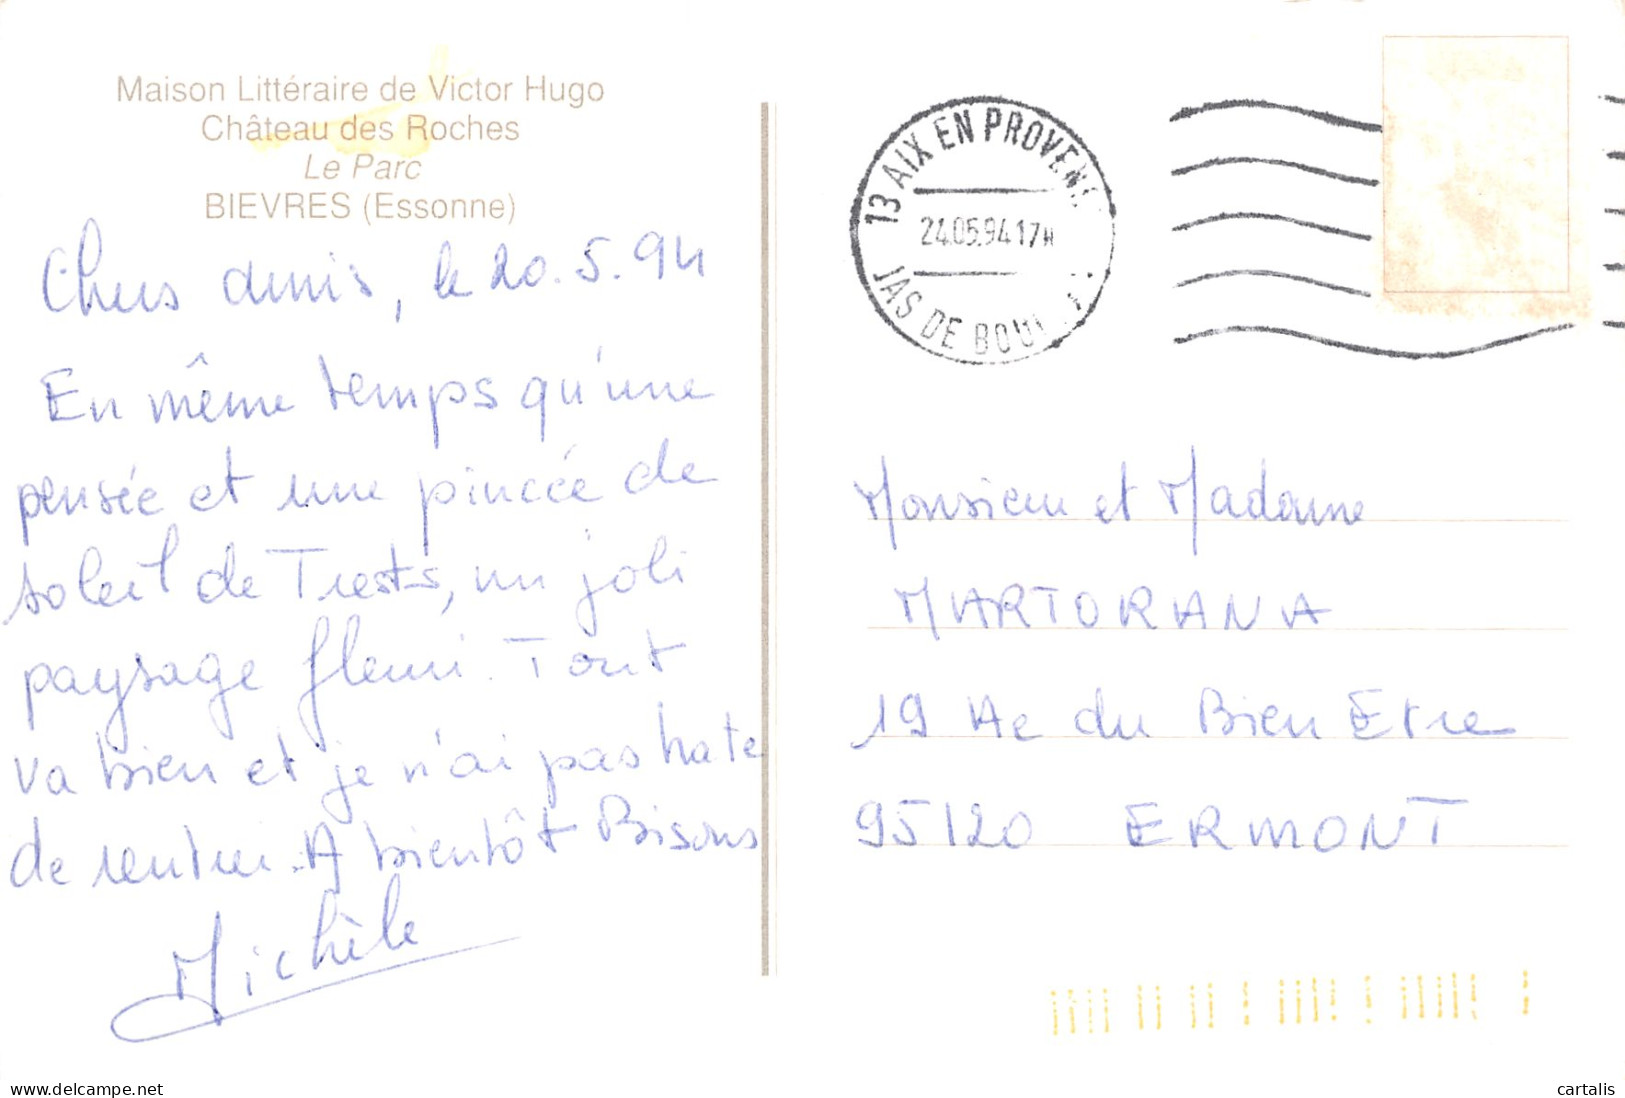 Maison Littéraire de Victor Hugo
Château des Roches
Le Parc
BIEVRES (Essonne)
Chers amis, le 20.5.94
En même temps qu'une
pensée et une pincée de
soleil de Trets, un joli
paysage fleuri. Tout
va bien et je n'ai pas hate
de rentrer. A bientôt Bisous
Michèle
13 AIX EN PROVEN
24.05.94 17H
JAS DE BOU
Monsieur et Madame
MARTORANA
19 Ae du Bien Etre
95120 ERMONT
www.delcampe.net
cartalis